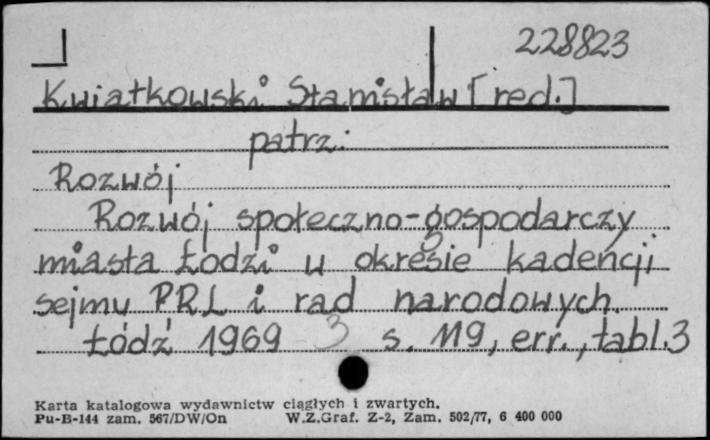 228823
Kwiatkowski Stanisław [red.]
patrz:
Rozwój
Rozwój społeczno-gospodarczy
miasta Łodzi w okresie kadencji
sejmu PRL i rad narodowych.
Łódź 1969 3 s. 119, err., tabl.3
Karta katalogowa wydawnictw ciągłych i zwartych.
Pu-B-144 zam. 567/DW/On W.Z.Graf. Z-2, Zam. 502/77, 6 400 000